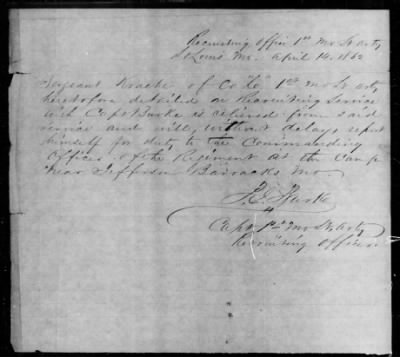 Recruiting Office 1st Mo Lt Arty
St Louis Mo. April 14, 1862
Sergeant of Co "E" 1st Mo Lt Arty
heretofore detailed on Recruiting Service
with Capt Burke is relieved from said
service and will, without delay report
himself for duty to the Commanding
Officer of the Regiment at the Camp
near Jefferson Barracks Mo.
Burke
Capt 1st Mo Lt Arty
Recruiting Officer